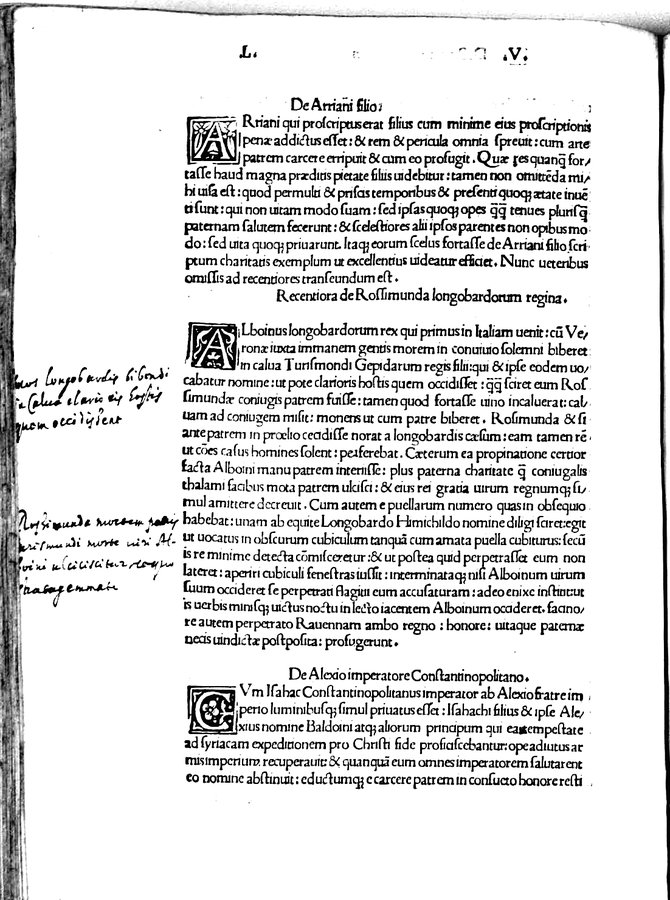 .L. .V.
De Arriani filio.
ARriani qui proſcriptus erat filius cum minime eius proſcriptionis
penæ addictus eſſet: & rem & pericula omnia ſpreuit: cum arte
patrem carcere erripuit & cum eo profugit. Quæ res quanq̃ for/
taſſe haud magna præditis pietate filiis uidebitur: tamen non omittẽda mi/
hi uiſa eſt: quod permulti & priſcis temporibus & preſenti quoq; ætate inuẽ
ti ſunt: qui non uitam modo ſuam: ſed ipſas quoq; opes q̃q̃ tenues pluriſq̃
paternam ſalutem fecerunt: & ſceleſtiores alii ipſos parentes non opibus mo
do: ſed uita quoq; priuarunt. Itaq; eorum ſcelus fortaſſe de Arriani filio ſcri
ptum charitatis exemplum ut excellentius uideatur efficiet. Nunc ueteribus
omiſſis ad recentiores tranſeundum eſt.
Recentiora de Roſſimunda longobardorum regina.
ALboinus longobardorum rex qui primus in Italiam uenit: cũ Ve/
ronæ iuxta immanem gentis morem in conuiuio ſolemni biberet
in calua Turiſmondi Gepidarum regis filii: qui & ipſe eodem uo/
cabatur nomine: ut pote clarioris hoſtis quem occidiſſet: q̃q̃ ſciret eum Roſ
ſimundæ coniugis patrem fuiſſe: tamen quod fortaſſe uino incaluerat: cal
uam ad coniugem miſit: monens ut cum patre biberet. Roſimunda & ſi
ante patrem in prœlio cecidiſſe norat a longobardis cæſum: eam tamen rẽ
ut cões caſus homines ſolent: pæferebat. Cæterum ea propinatione certior
facta Alboini manu patrem interiiſſe: plus paterna charitate q̃ coniugalis
thalami facibus mota patrem ulciſci: & eius rei gratia uirum regnumq; ſi/
mul amittere decreuit. Cum autem e puellarum numero quas in obſequio
habebat: unam ab equite Longobardo Himichildo nomine diligi ſciret: egit
ut uocatus in obſcurum cubiculum tanquã cum amata puella cubiturus: ſecũ
is re minime detecta cõmiſceretur: & ut poſtea quid perpetraſſet eum non
lateret: aperiri cubiculi feneſtras iuſſit: interminataq; niſi Alboinum uirum
ſuum occideret ſe perpetrati flagitii eum accuſaturam: adeo enixe inſtitit ut
is uerbis miniſq; uictus noctu in lecto iacentem Alboinum occideret. facino/
re autem perpetrato Rauennam ambo regno: honore: uitaque paternæ
necis uindictæ poſtpoſita: profugerunt.
De Alexio imperatore Conſtantinopolitano.
CVm Iſahac Conſtantinopolitanus imperator ab Alexio fratre im
perio luminibuſq; ſimul priuatus eſſet: Iſahachi filius & ipſe Ale/
xius nomine Baldoini atq; aliorum principum qui ea tempeſtate
ad ſyriacam expeditionem pro Chriſti fide proficiſcebantur: ope adiutus ar
mis imperium recuperauit: & quanquã eum omnes imperatorem ſalutarent
eo nomine abſtinuit: eductumq; e carcere patrem in conſueto honore reſti
longobardis bibendi
in calua clarioris hoſtis
quem occidiſſent
Roſſimunda mortem patris
morte uiri Al-
boini ulciscitur
ſtratagemmate